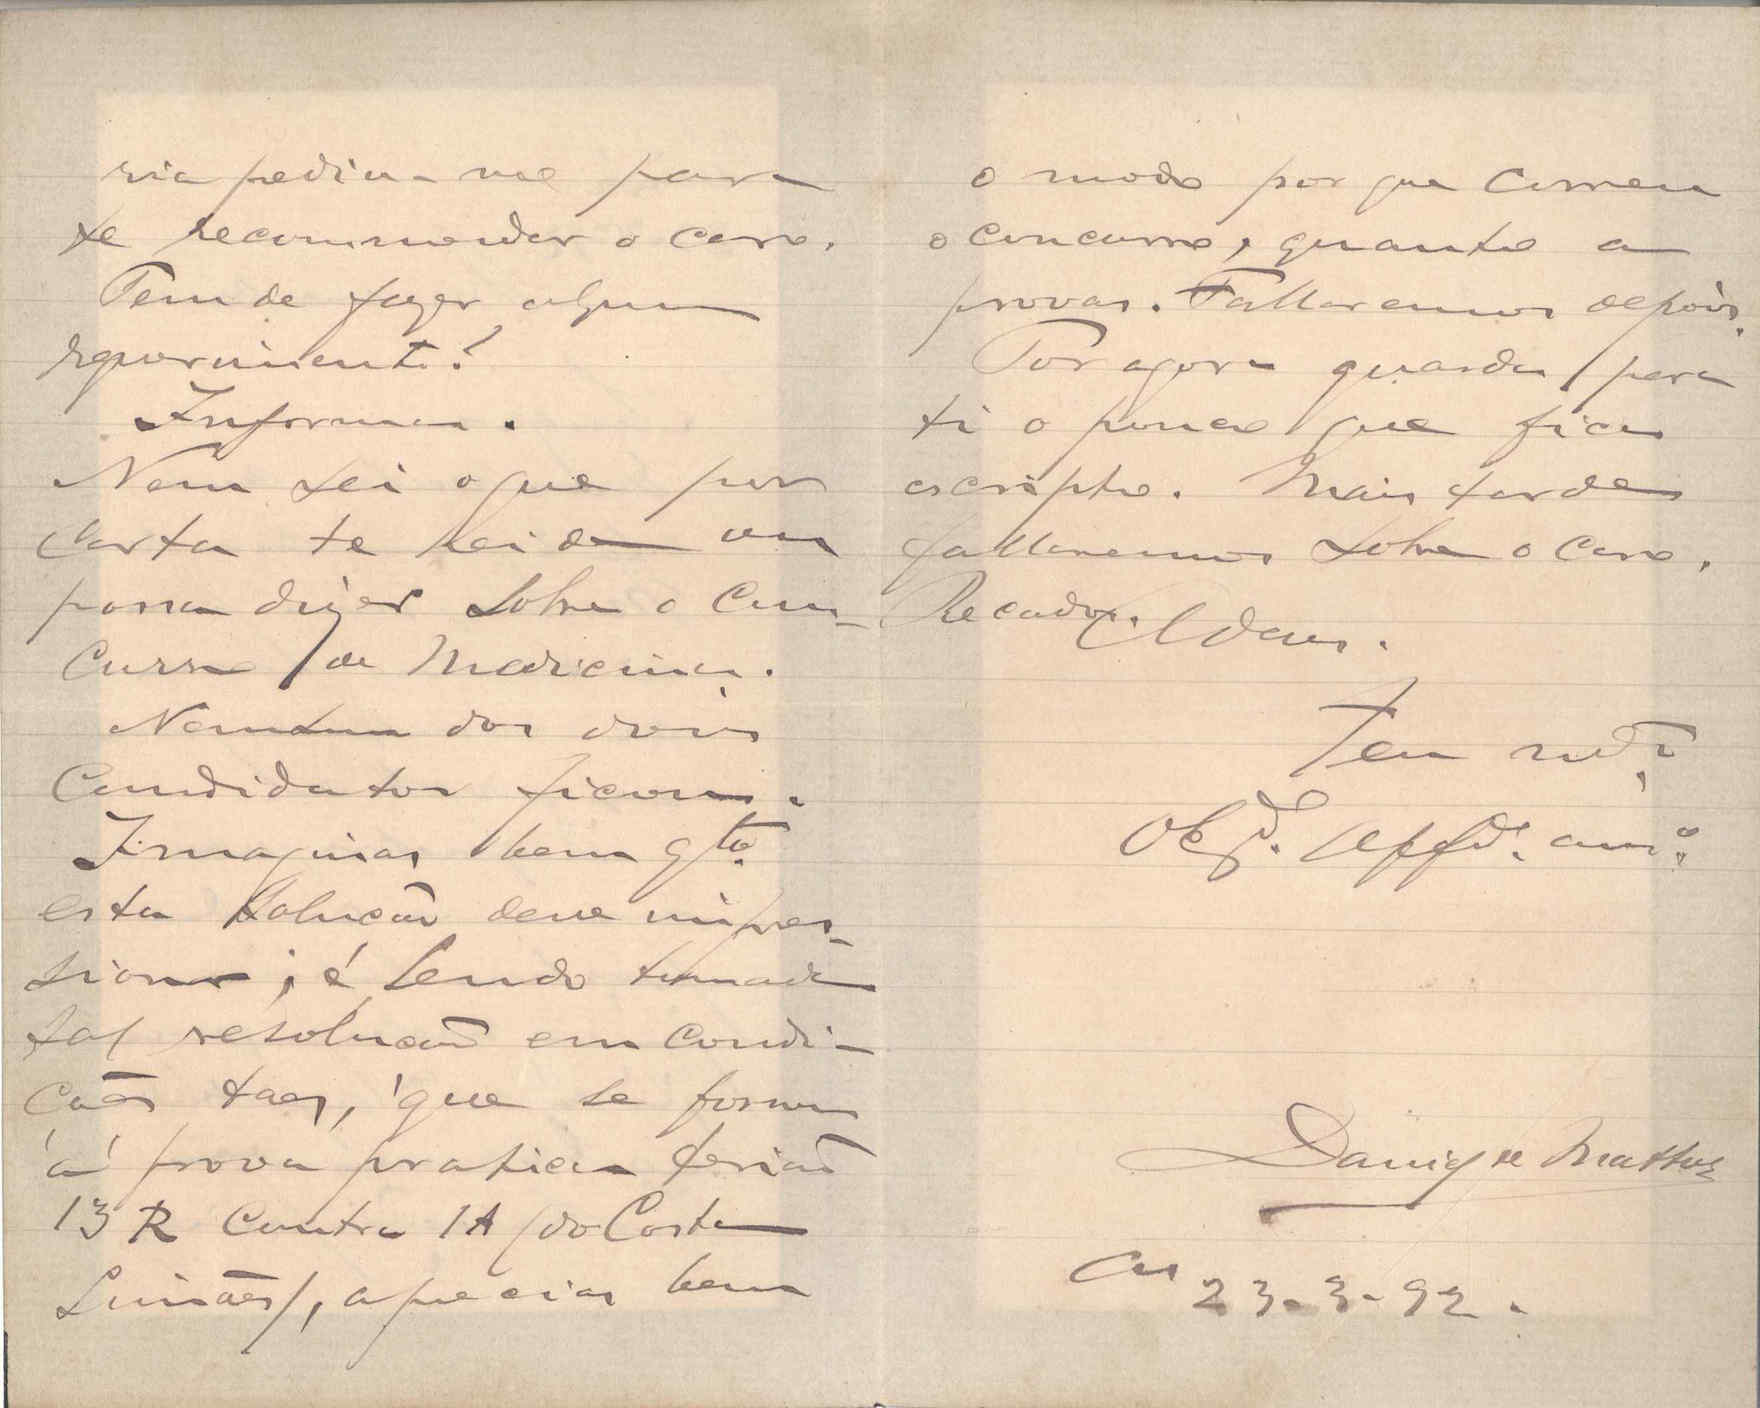 ria pediu-me para
te recommendar o caso.
Tem de fazer algum
requerimento?
Informa.
Nem sei o que por
carta te hei de ou
possa dizer sobre o con-
curso de Medicina.
Nenhum dos dois
Candidatos ficou.
Imaginas bem qto.
esta solução deve impres-
sionar; é sendo tomada
tal resolução em condi-
ções taes, que se forma
á prova pratica terião
13 R contra 1 A (do Costa
Simões), aprecias bem
o modo por que correu
o concurso, quanto a
provas. Fallaremos depois.
Por agora guarda para
ti o pouco que fica
escripto. Mais tarde
fallaremos sobre o caso.
Recados. Adeus.
Teu
Obgdo. am.º
Daniel de Mattos
23-3-92.